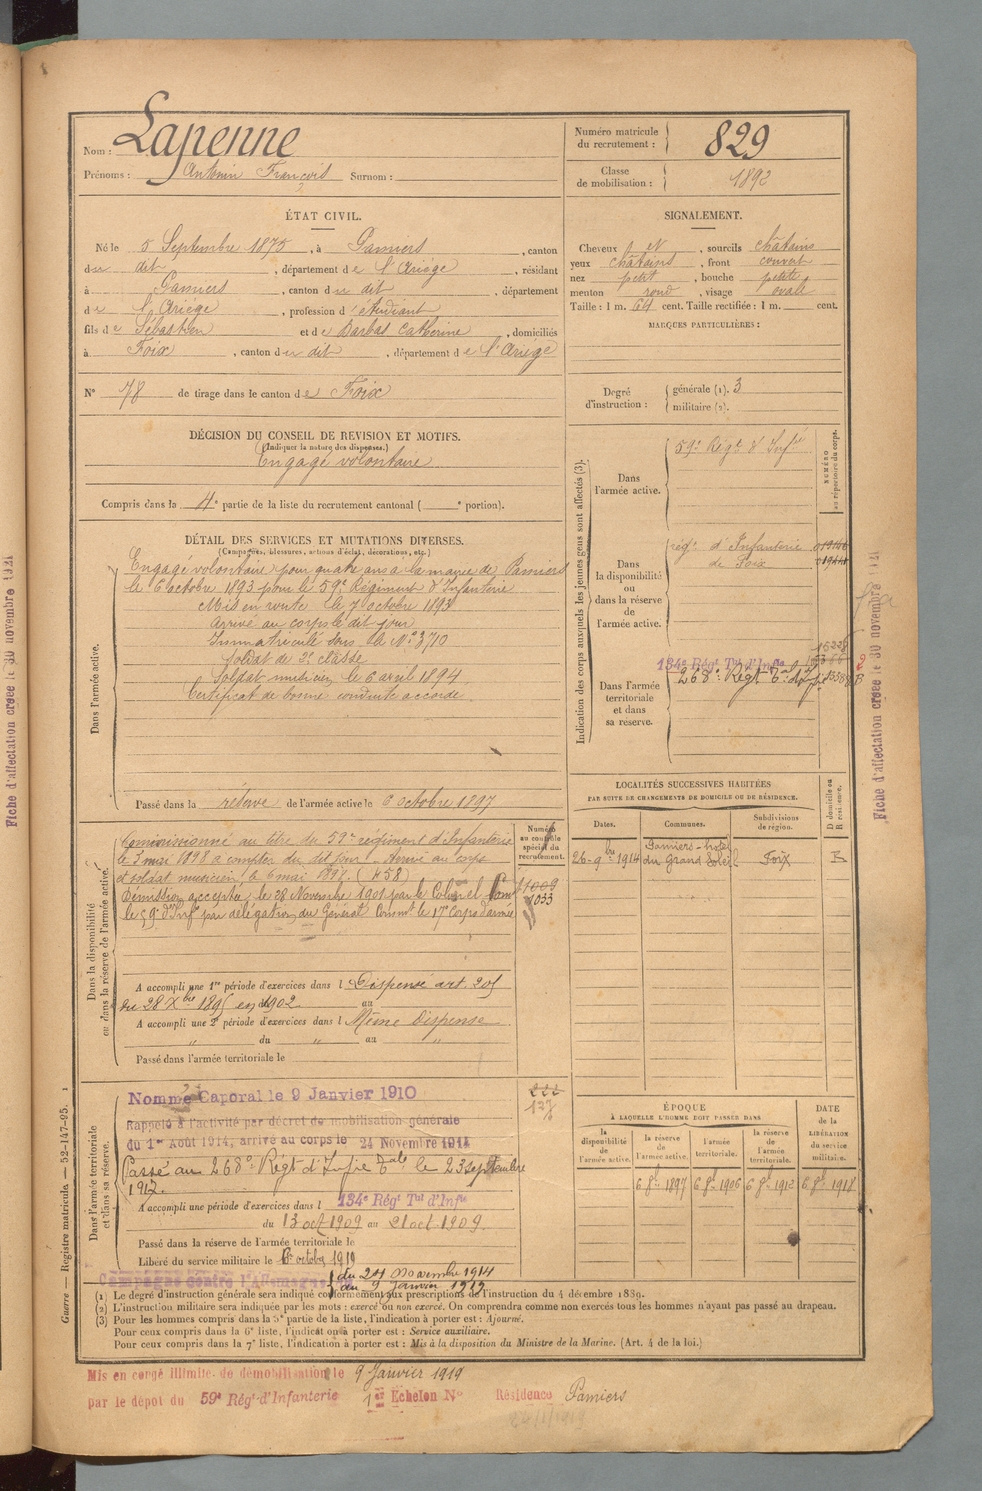 Nom : Lapenne
Prénoms : Antonin François Surnom :
Numéro matricule du recrutement : 829
Classe de mobilisation : 1892
ÉTAT CIVIL.
Né le 5 Septembre 1875, à Pamiers, canton
du dit, département de l'Ariège, résidant
à Pamiers, canton du dit, département
de l'Ariège, profession d'étudiant
fils de Sébastien et de Barbas Catherine, domiciliés
à Foix, canton du dit, département de l'Ariège
N° 78 de tirage dans le canton de Foix
SIGNALEMENT.
Cheveux et sourcils châtains
yeux châtains, front couvert
nez petit, bouche petite
menton rond, visage ovale
Taille : 1 m. 64 cent. Taille rectifiée : 1 m. cent.
MARQUES PARTICULIÈRES :
Degré d'instruction : générale (1). 3
militaire (2).
DÉCISION DU CONSEIL DE REVISION ET MOTIFS.
(Indiquer la nature des dispenses.)
Engagé volontaire
Compris dans la 4e partie de la liste du recrutement cantonal ( e portion).
DÉTAIL DES SERVICES ET MUTATIONS DIVERSES.
(Campagnes, blessures, actions d'éclat, décorations, etc.)
Dans l'armée active.
Engagé volontaire pour quatre ans à la mairie de Pamiers
le 6 octobre 1893 pour le 59e Régiment d'Infanterie
Mis en route le 7 octobre 1893
Arrivé au corps le dit jour
Immatriculé sous le N° 3710
Soldat de 2e classe
Soldat musicien le 6 avril 1894
Certificat de bonne conduite accordé
Passé dans la réserve de l'armée active le 6 octobre 1897
Dans la disponibilité ou dans la réserve de l'armée active.
Commissionné au titre du 59e régiment d'Infanterie
le 3 mai 1898 à compter du dit jour. Arrivé au corps
et soldat musicien le 6 mai 1898. (458)
Démission acceptée le 28 Novembre 1901 par le Colonel Comt
le 59e d'Infie par délégation du Général Commt le 17e Corps d'armée
Numéro au contrôle spécial du recrutement.
1009
1033
A accompli une 1re période d'exercices dans l Dispensé art. 205
du 28 Xbre 1895 en 1902 au
A accompli une 2e période d'exercices dans l Même dispense
du " au "
Passé dans l'armée territoriale le
Dans l'armée territoriale et dans sa réserve.
Nommé Caporal le 9 Janvier 1910
Rappelé à l'activité par décret de mobilisation générale
du 1er Août 1914, arrivé au corps le 24 Novembre 1914
Passé au 268e Régt d'Infie Tale le 23 septembre
1917.
127
A accompli une période d'exercices dans l 134e Régt Tal d'Infie
du 13 oct 1909 au 21 oct 1909.
Passé dans la réserve de l'armée territoriale le
Libéré du service militaire le octobre 1919
Campagne contre l'Allemagne
du 24 novembre 1914
au 9 Janvier 1919
Indication des corps auxquels les jeunes gens sont affectés (3).
NUMÉRO au répertoire du corps.
Dans l'armée active.
59e Régt d'Infie
Dans la disponibilité ou dans la réserve de l'armée active.
régt d'Infanterie
de Foix
Dans l'armée territoriale et dans sa réserve.
134e Régt Tal d'Infie
268e Régt Tal d'Infie
LOCALITÉS SUCCESSIVES HABITÉES
PAR SUITE DE CHANGEMENTS DE DOMICILE OU DE RÉSIDENCE.
Dates. Communes. Subdivisions de région. D domicile ou R résidence.
26-9bre 1914 Pamiers - hôtel du Grand Soleil Foix R
ÉPOQUE
À LAQUELLE L'HOMME DOIT PASSER DANS
la disponibilité de l'armée active. la réserve de l'armée active. l'armée territoriale. la réserve de l'armée territoriale.
DATE de la LIBÉRATION du service militaire.
6 8bre 1897 6 8bre 1906 6 8bre 1912 6 8bre 1918
(1) Le degré d'instruction générale sera indiqué conformément aux prescriptions de l'instruction du 4 décembre 1889.
(2) L'instruction militaire sera indiquée par les mots : exercé ou non exercé. On comprendra comme non exercés tous les hommes n'ayant pas passé au drapeau.
(3) Pour les hommes compris dans la 5e partie de la liste, l'indication à porter est : Ajourné.
Pour ceux compris dans la 6e liste, l'indication à porter est : Service auxiliaire.
Pour ceux compris dans la 7e liste, l'indication à porter est : Mis à la disposition du Ministre de la Marine. (Art. 4 de la loi.)
Guerre — Registre matricule. — 52-147-95.
Mis en congé illimité de démobilisation le 9 Janvier 1919
par le dépôt du 59e Régt d'Infanterie 1er Echelon N° Résidence Pamiers
Fiche d'affectation créée le 30 novembre 1921
Fiche d'affectation créée le 30 novembre 1921